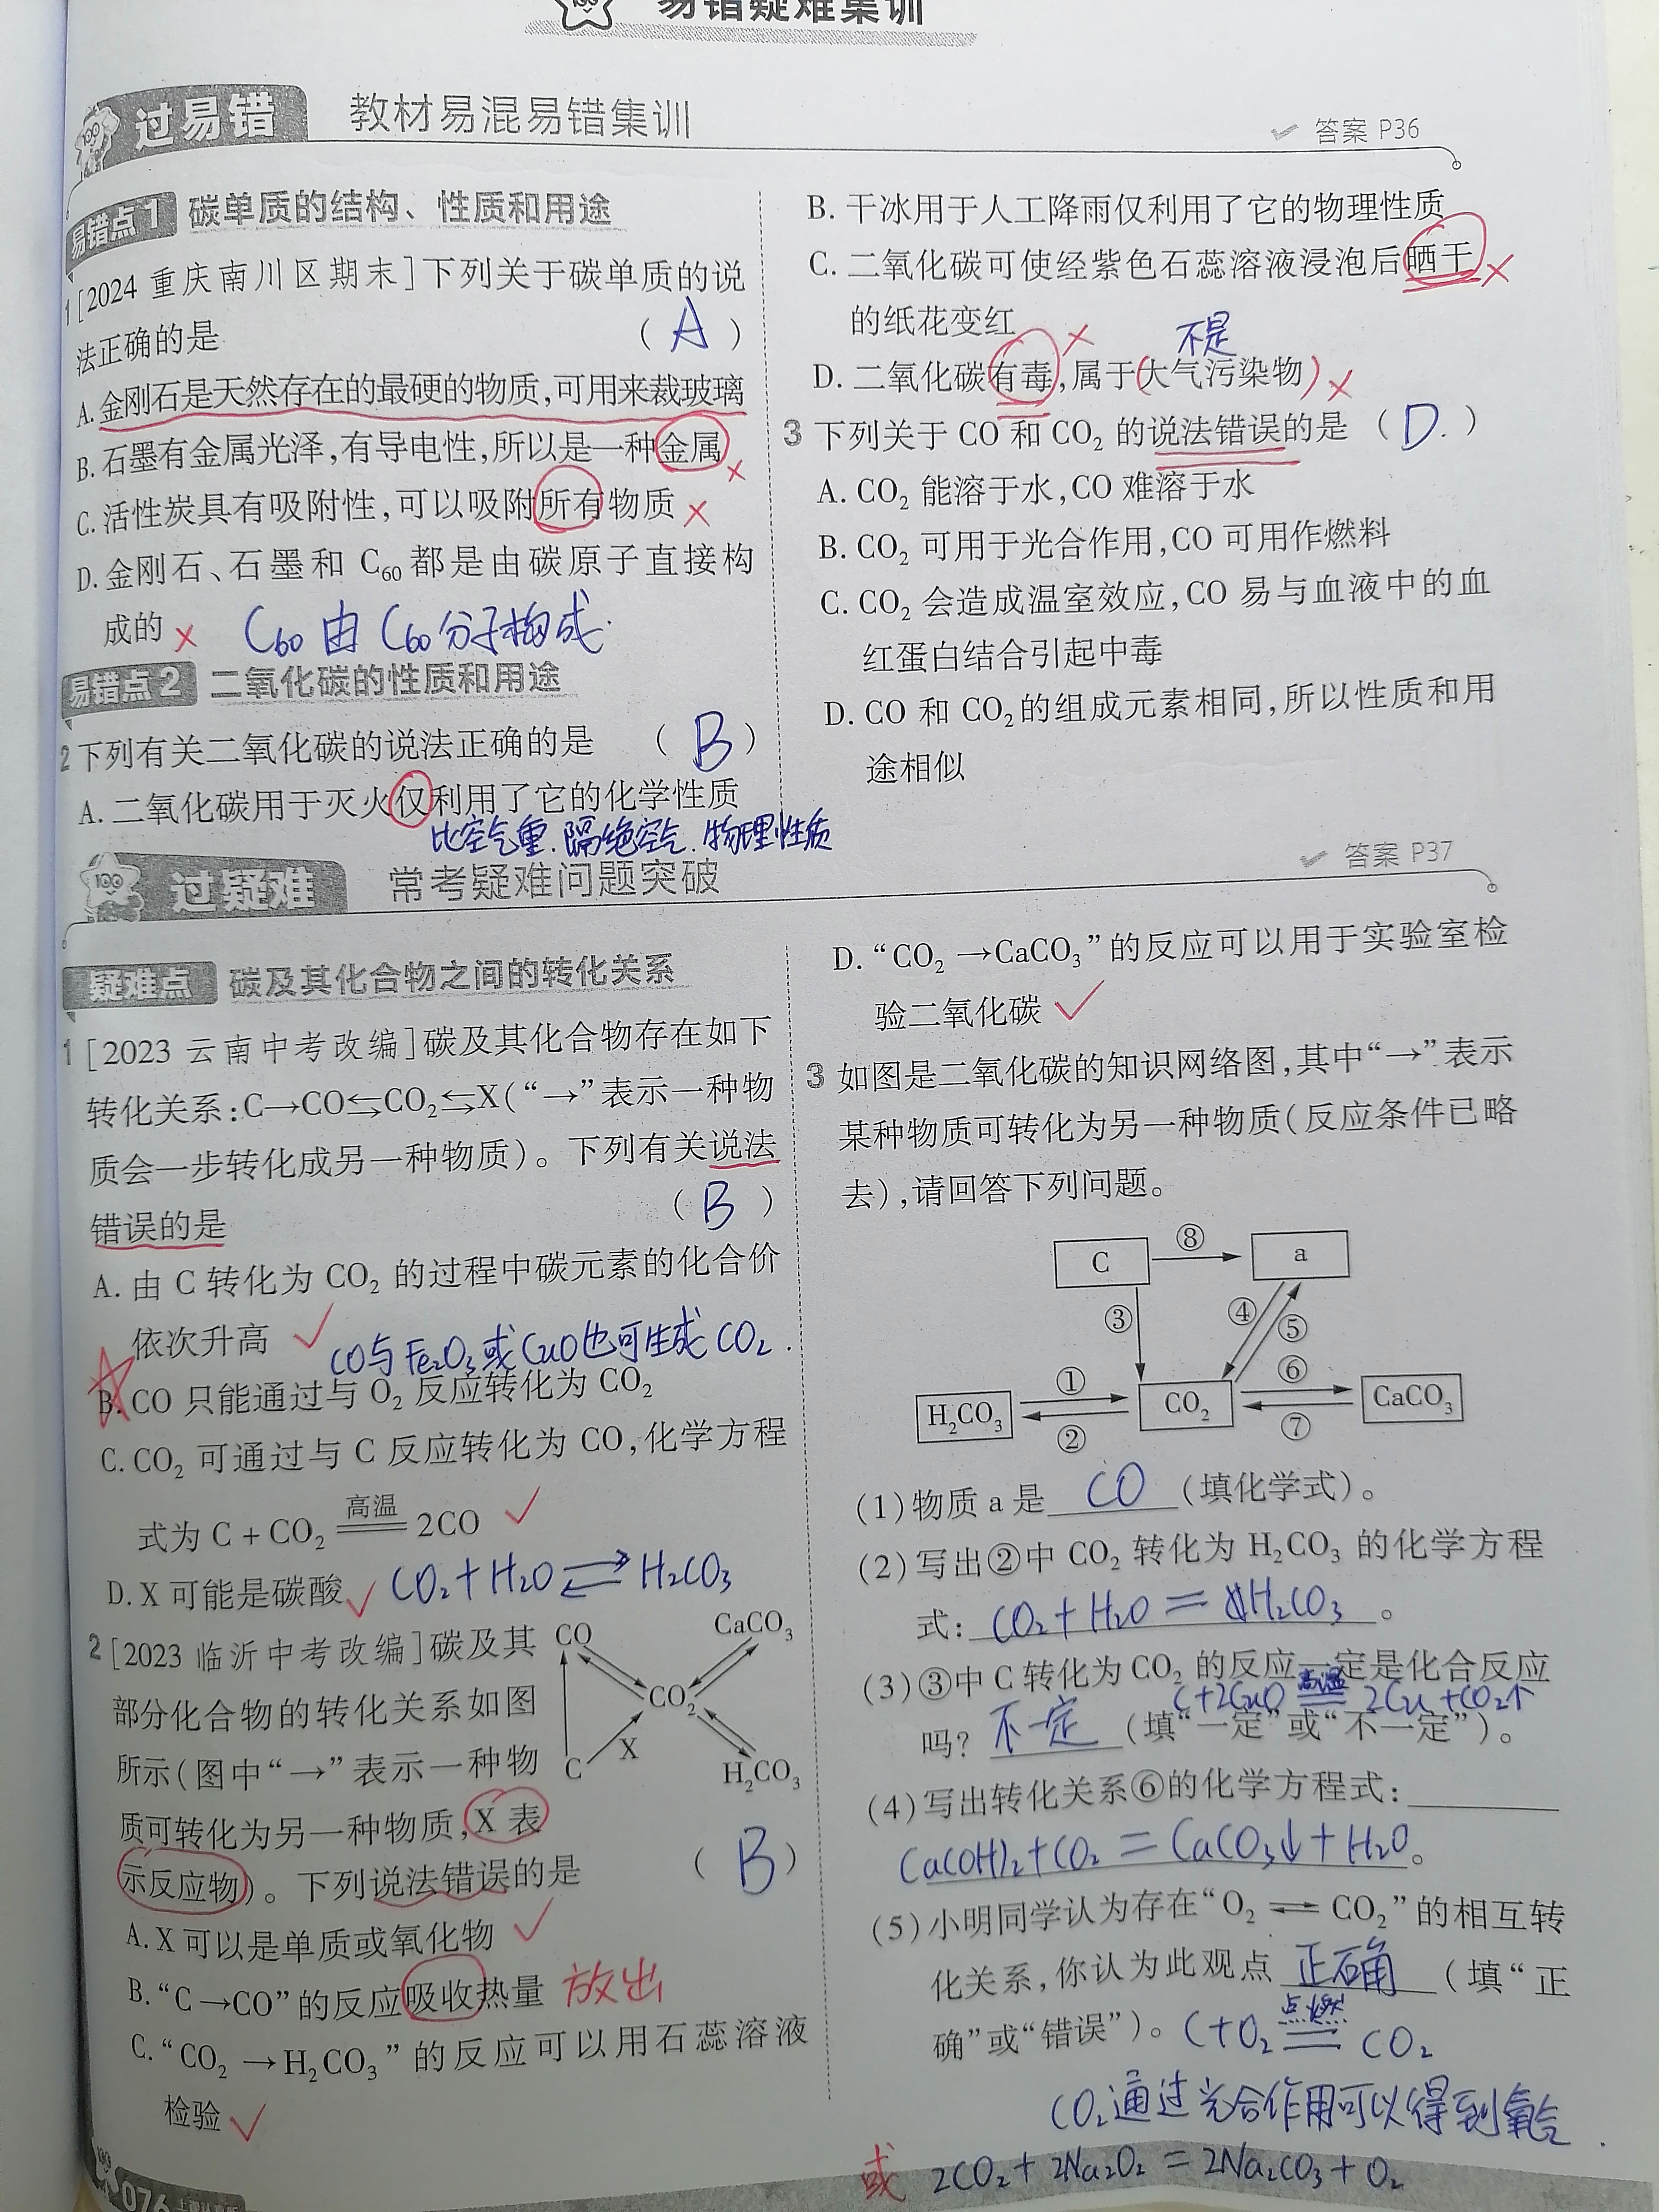 易错疑难集训
过易错 教材易混易错集训
答案 P36
易错点1 碳单质的结构、性质和用途
1 [2024 重庆南川区期末]下列关于碳单质的说
法正确的是 ( A )
A. 金刚石是天然存在的最硬的物质,可用来裁玻璃
B. 石墨有金属光泽,有导电性,所以是一种金属 ×
C. 活性炭具有吸附性,可以吸附所有物质 ×
D. 金刚石、石墨和 C₆₀ 都是由碳原子直接构
成的 × C₆₀ 由 C₆₀分子构成.
易错点2 二氧化碳的性质和用途
2 下列有关二氧化碳的说法正确的是 ( B )
A. 二氧化碳用于灭火仅利用了它的化学性质
比空气重.隔绝空气.物理性质
B. 干冰用于人工降雨仅利用了它的物理性质
C. 二氧化碳可使经紫色石蕊溶液浸泡后晒干 ×
的纸花变红
× 不是
D. 二氧化碳有毒,属于(大气污染物) ×
3 下列关于 CO 和 CO₂ 的说法错误的是 ( D. )
A. CO₂ 能溶于水,CO 难溶于水
B. CO₂ 可用于光合作用,CO 可用作燃料
C. CO₂ 会造成温室效应,CO 易与血液中的血
红蛋白结合引起中毒
D. CO 和 CO₂的组成元素相同,所以性质和用
途相似
过疑难 常考疑难问题突破
答案 P37
疑难点 碳及其化合物之间的转化关系
1 [2023 云南中考改编]碳及其化合物存在如下
转化关系:C→CO⇆CO₂⇆X(“→”表示一种物
质会一步转化成另一种物质)。下列有关说法
错误的是 ( B )
A. 由 C 转化为 CO₂ 的过程中碳元素的化合价
依次升高 ✓
CO与Fe₂O₃或CuO也可生成CO₂.
B. CO 只能通过与 O₂ 反应转化为 CO₂
C. CO₂ 可通过与 C 反应转化为 CO,化学方程
高温
式为 C + CO₂ ══ 2CO ✓
D. X 可能是碳酸 ✓ CO₂+H₂O ⇌ H₂CO₃
2 [2023 临沂中考改编]碳及其
部分化合物的转化关系如图
所示(图中“→”表示一种物
质可转化为另一种物质,X 表
示反应物)。下列说法错误的是 ( B )
CO CaCO₃
CO₂
C X H₂CO₃
A. X 可以是单质或氧化物 ✓
B. “C→CO”的反应吸收热量 放出
C. “CO₂ →H₂CO₃”的反应可以用石蕊溶液
检验 ✓
D. “CO₂ →CaCO₃”的反应可以用于实验室检
验二氧化碳 ✓
3 如图是二氧化碳的知识网络图,其中“→”表示
某种物质可转化为另一种物质(反应条件已略
去),请回答下列问题。
C ⑧ a
③ ④ ⑤
H₂CO₃ ① ② CO₂ ⑥ ⑦ CaCO₃
(1)物质 a 是 CO (填化学式)。
(2)写出②中 CO₂ 转化为 H₂CO₃ 的化学方程
式: CO₂+H₂O = H₂CO₃ 。
(3)③中 C 转化为 CO₂ 的反应一定是化合反应
C+2CuO 高温 ══ 2Cu +CO₂↑
吗? 不一定 (填“一定”或“不一定”)。
(4)写出转化关系⑥的化学方程式:
Ca(OH)₂+CO₂ = CaCO₃↓+H₂O 。
(5)小明同学认为存在“O₂ ⇌ CO₂”的相互转
化关系,你认为此观点 正确 (填“正
确”或“错误”)。 C+O₂ 点燃 ══ CO₂
CO₂通过光合作用可以得到氧气.
或 2CO₂+2Na₂O₂ = 2Na₂CO₃+O₂
076